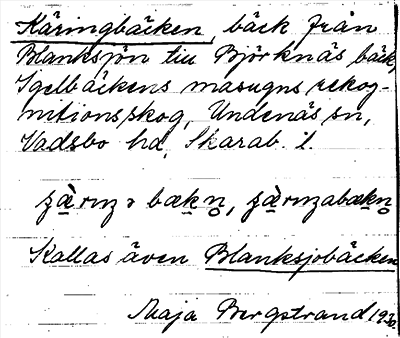 Käringbäcken, bäck från
Blanksjön till Björknäs bäck,
Igelbäckens masugns rekog-
nitionsskog, Undenäs sn,
Vadsbo hd, Skarab. l.
Kallas även Blanksjobäcken
Maja Bergstrand 1930.